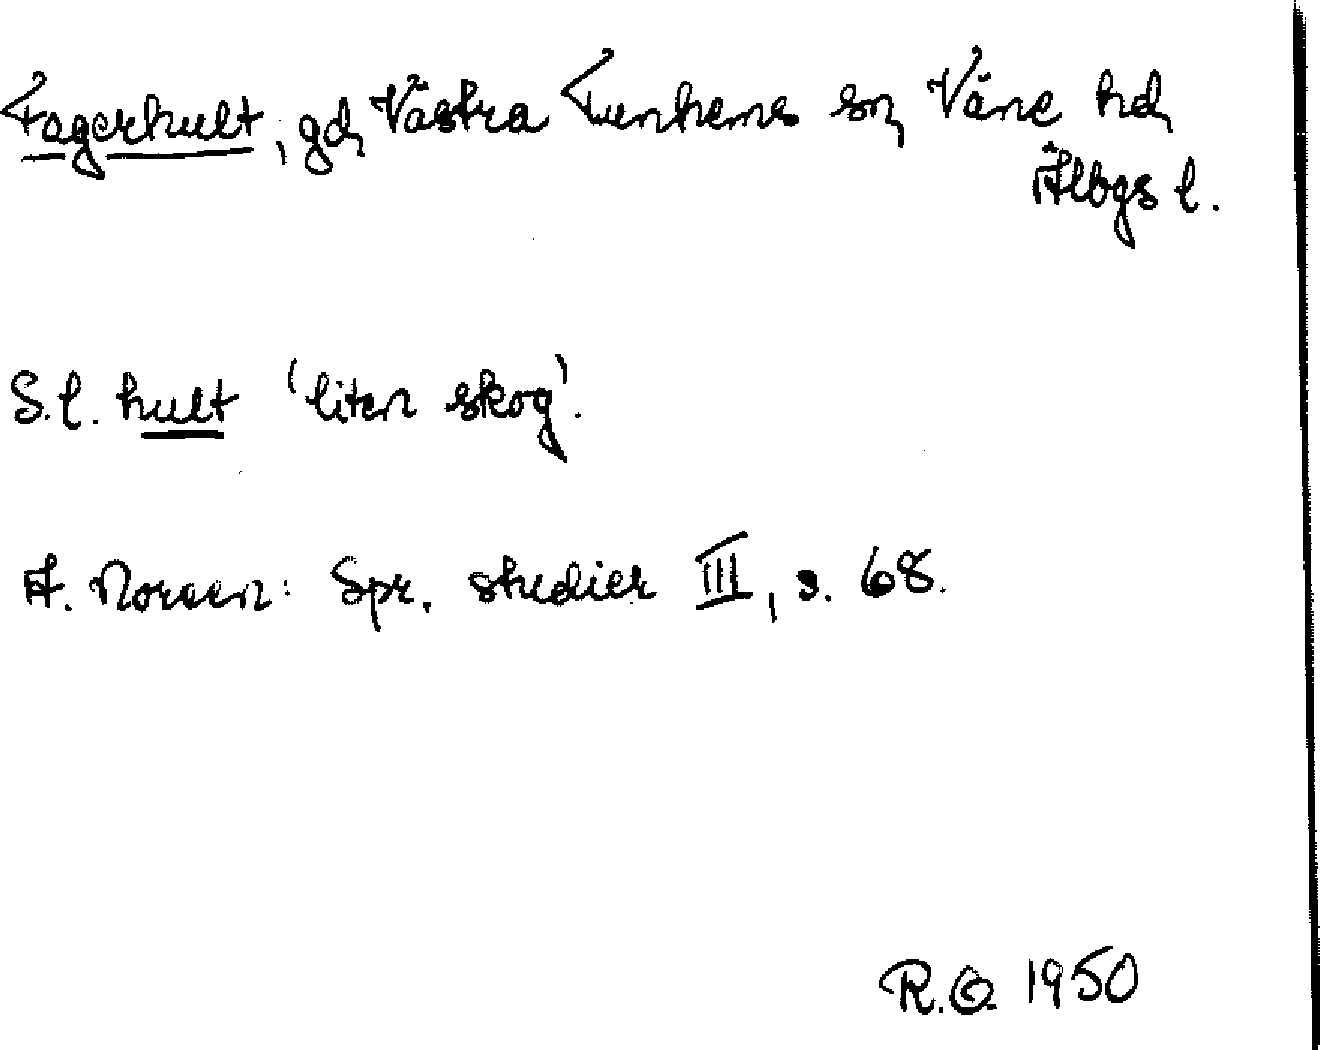 Fagerhult, gd, Västra Tunhems sn, Väne hd,
Älbgs l.
S.l. hult 'liten skog'.
A. Noreen: Spr. studier III, s. 68.
R.O. 1950